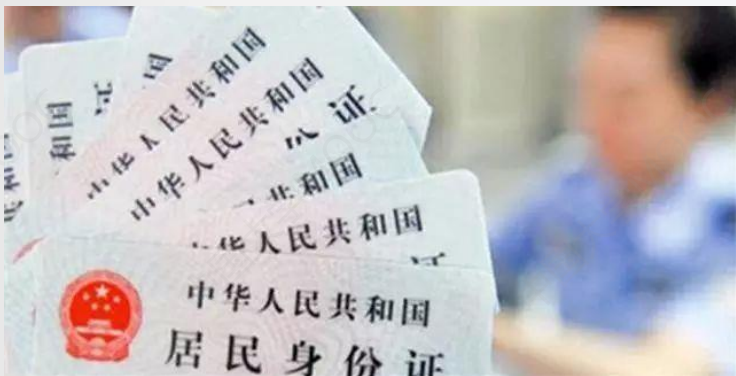 国
和国
证
中华人民共和国
中华人民共和国
份证
共和国
华人民共和国
证
中华人民共和国
居民身份证